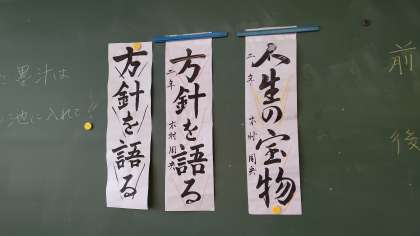 前
後
人生の宝物
二年 木村
方針を語る
二年 木村
方針を語る
墨汁は
池に入れて